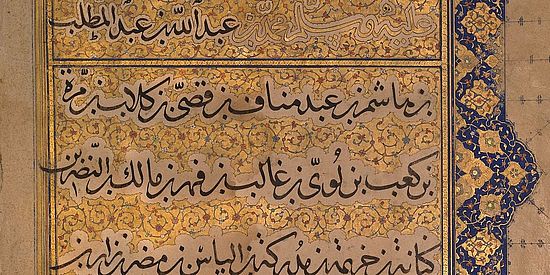 عليه وسلم محمد بن عبدالله بن عبدالمطلب
بن هاشم بن عبد مناف بن قصي بن كلاب بن مرة
بن كعب بن لوي بن غالب بن فهر بن مالك بن النضر بن
كنانة بن خزيمة بن مدركة بن الياس بن مضر بن نزار بن